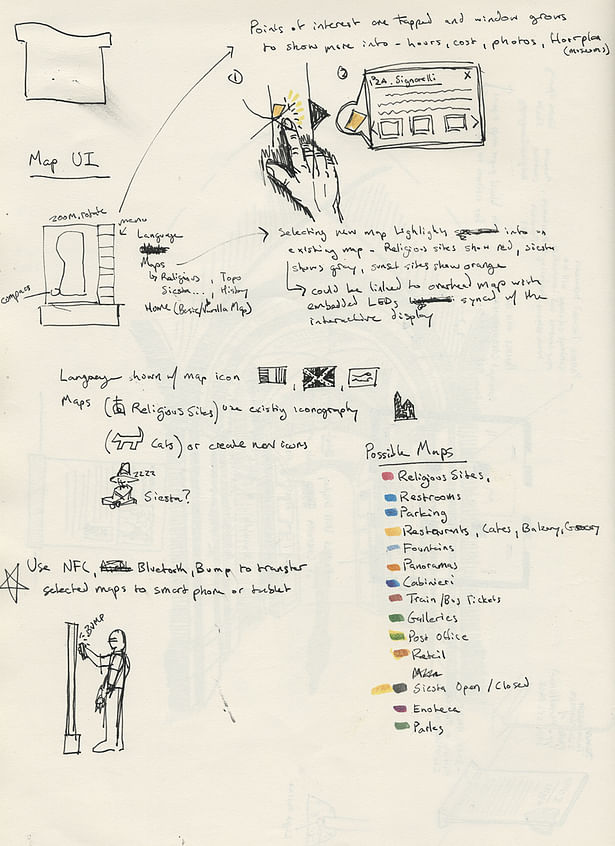 Points of interest are tapped and window grows
to show more info - hours, cost, photos, floorplan
(museums)
① ②
PZA. Signorelli X
Map UI
ZOOM, rotate
menu
Language
Maps
Religious, Topo
Siesta..., History
Home (Basic/Vanilla Map)
compass
Selecting new map highlights info on
existing map - Religious sites show red, siesta
shows gray, sunset sites show orange
could be linked to overhead map with
embedded LEDs synced w/ the
interactive display
Language shown w/ map icon
Maps (Religious Sites) use existing iconography
(Cats) or create new icons
zzzz
Siesta?
Possible Maps
Religious Sites,
Restrooms
Parking
Restaurants, Cafes, Bakery, Grocery
Fountains
Panoramas
Cabinieri
Train/Bus Tickets
Galleries
Post Office
Retail
Siesta Open/Closed
Enoteca
Parks
Use NFC, Bluetooth, Bump to transfer
selected maps to smart phone or tablet
BUMP